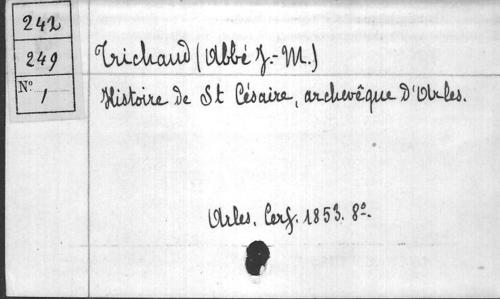 242
249
N° 1
Trichaud (Abbé J.-M.)
Histoire de St Césaire, archevêque d'Arles.
Arles. Cerf. 1853. 8°.